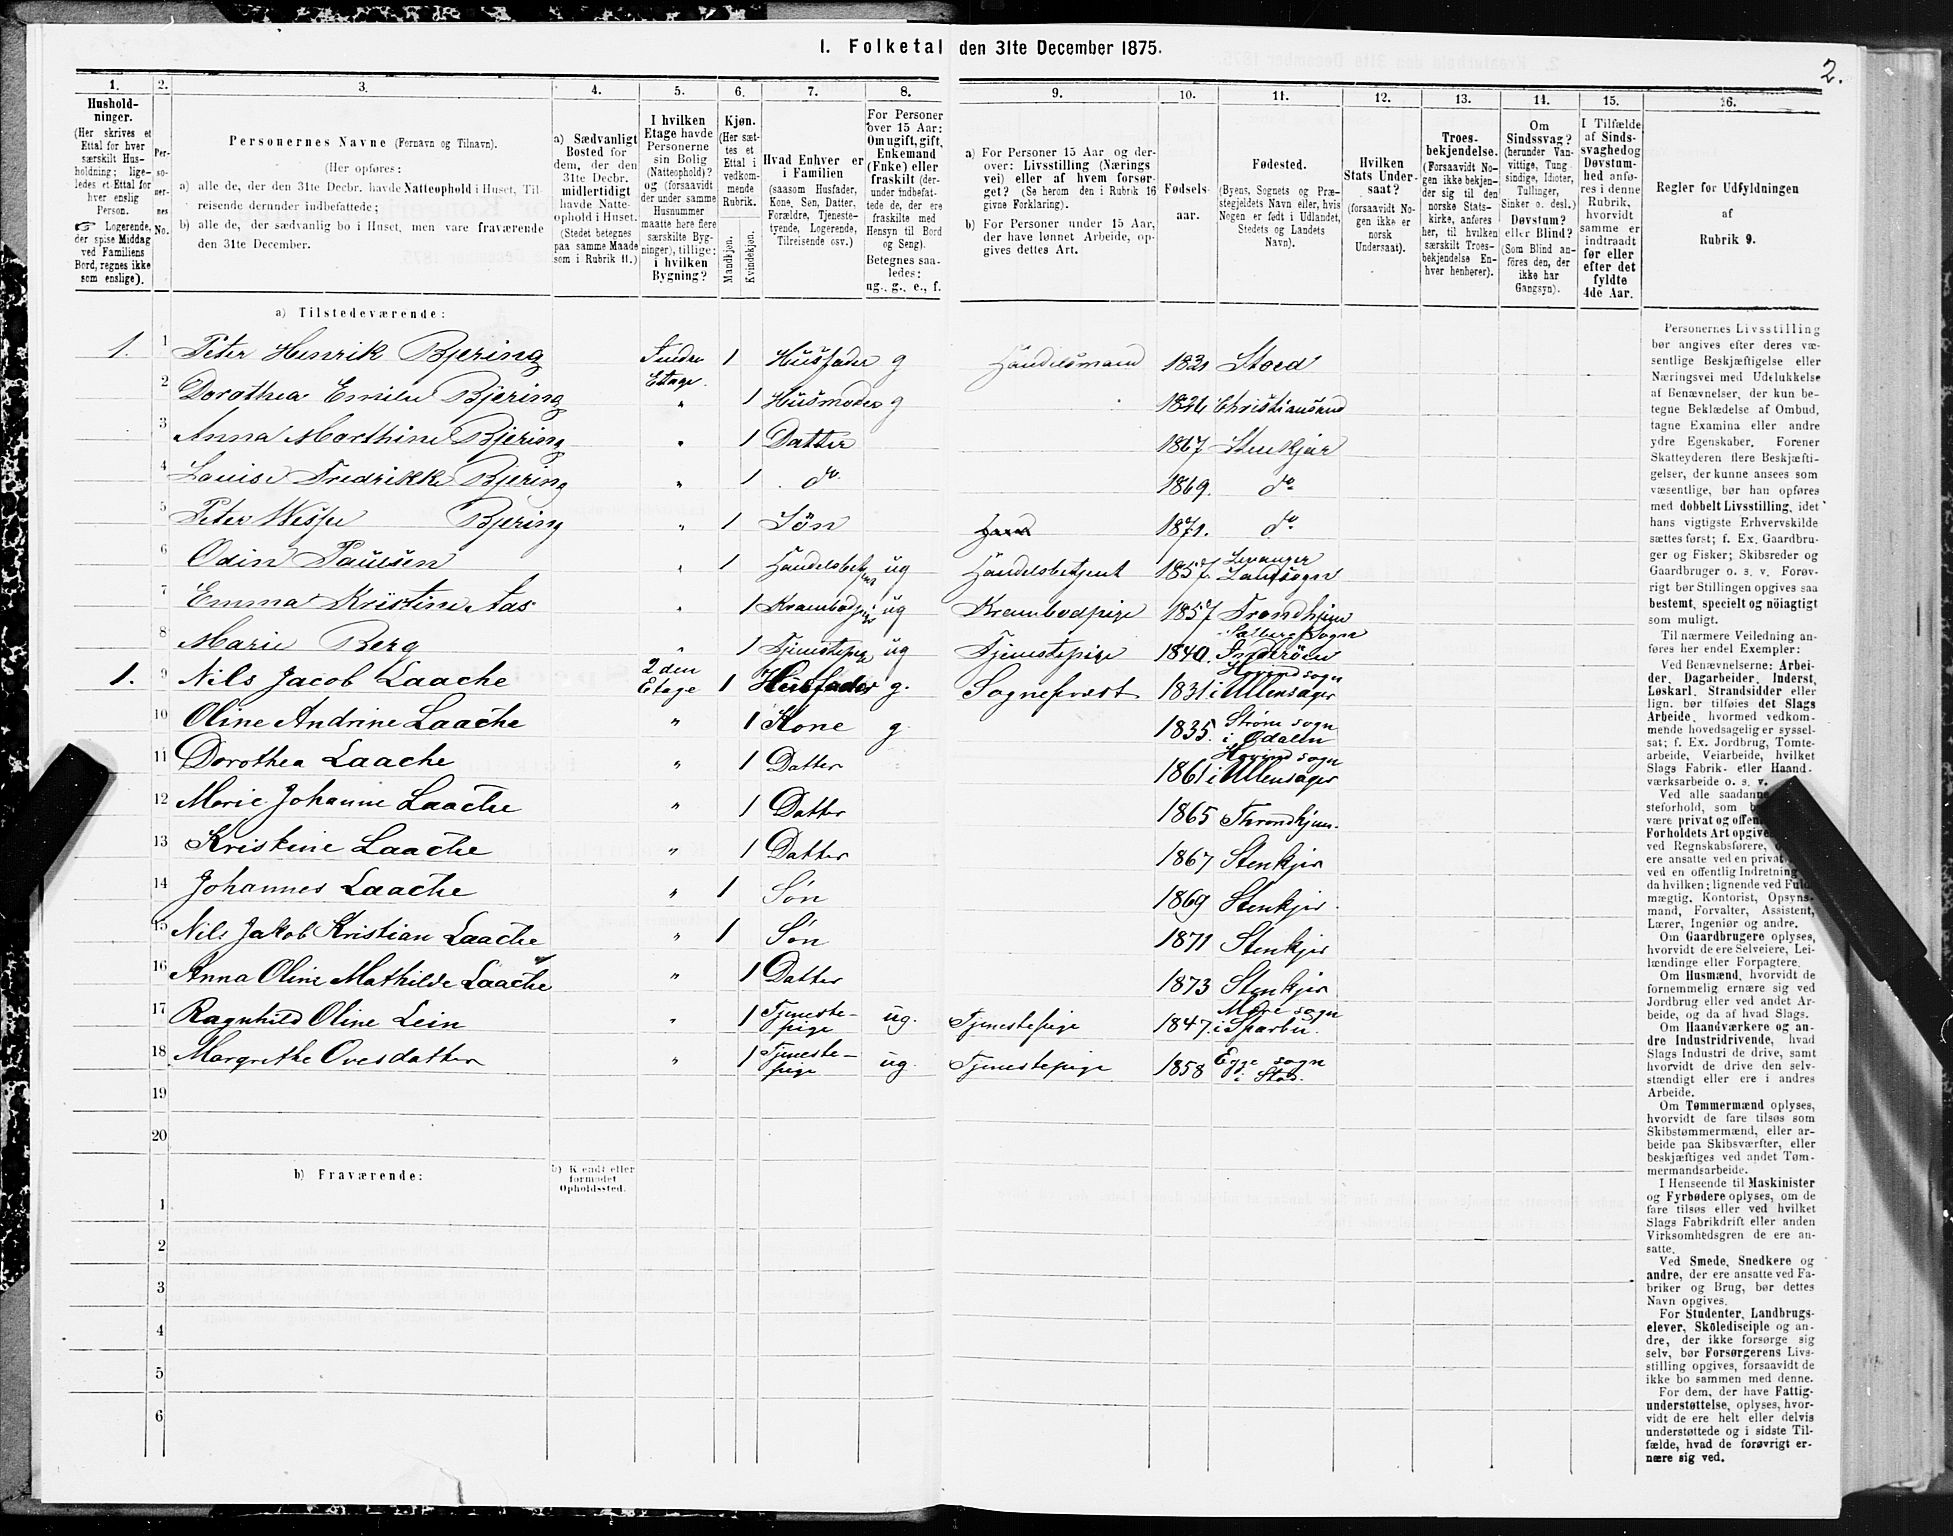 I. Folketal den 31te December 1875.
2.
1. 2. 3. 4. 5. 6. 7. 8. 9. 10. 11. 12. 13. 14. 15. 16.
Hushold-
ninger.
(Her skrives et
Ettal for hver
særskilt Hus-
holdning; lige-
ledes et Ettal for
hver enslig
Person.
☞ Logerende,
der spise Middag
ved Familiens
Bord, regnes ikke
som enslige).
Per-
so-
ner-
nes
No.
Personernes Navne (Fornavn og Tilnavn).
(Her opføres:
a) alle de, der den 31te Decbr. havde Natteophold i Huset, Til-
reisende derunder indbefattede;
b) alle de, der sædvanlig bo i Huset, men vare fraværende
den 31te December.
a) Sædvanligt
Bosted for
dem, der den
31te Decbr.
midlertidigt
havde Natte-
ophold i Huset.
(Stedet betegnes
paa samme Maade
som i Rubrik 11.)
I hvilken
Etage havde
Personerne
sin Bolig
(Natteophold)?
og (forsaavidt
der under samme
Husnummer
maatte høre flere
særskilte Byg-
ninger), tillige:
i hvilken
Bygning?
Kjøn.
(Her sæt-
tes et
Ettal i
vedkom-
mende
Rubrik.
Mandkjøn.
Kvindekjøn.
Hvad Enhver er
i Familien
(saasom Husfader,
Kone, Søn, Datter,
Forældre, Tjeneste-
tyende, Logerende,
Tilreisende osv.)
For Personer
over 15 Aar:
Om ugift, gift,
Enkemand
(Enke) eller
fraskilt (der-
under indbefat-
tede de, der ere
fraskilte med
Hensyn til Bord
og Seng).
Betegnes saa-
ledes:
ug., g., e., f.
a) For Personer 15 Aar og der-
over: Livsstilling (Nærings
vei) eller af hvem forsør-
get? (Se herom den i Rubrik 16
givne Forklaring).
b) For Personer under 15 Aar,
der have lønnet Arbeide, op-
gives dettes Art.
Fødsels-
aar.
Fødested.
(Byens, Sognets og Præ-
stegjeldets Navn eller, hvis
Nogen er født i Udlandet,
Stedets og Landets
Navn).
Hvilken
Stats Under-
saat?
(forsaavidt No-
gen ikke er
norsk
Undersaat).
Troes-
bekjendelse.
(Forsaavidt No-
gen ikke bekjen-
der sig til den
norske Stats-
kirke, anføres
her, til hvilken
særskilt Troes-
bekjendelse En-
hver henhører).
Om
Sindssvag?
(herunder Van-
vittige, Tung-
sindige, Idioter,
Tullinger,
Sinker o. desl.)
Døvstum?
eller Blind?
(Som Blind an-
føres den, der
ikke har
Gangsyn).
I Tilfælde
af Sinds-
svaghed og
Døvstum-
hed anfø-
res i denne
Rubrik,
hvorvidt
samme er
indtraadt
før eller
efter det
fyldte
4de Aar.
Regler for Udfyldningen
af
Rubrik 9.
a) Tilstedeværende:
1. 1 Peter Henrik Bjering Indre Etage. 1 Husfader g Handelsmand 1831 Stod
2 Dorothea Emilie Bjering " 1 Husmoder g 1826 Christiansund
3 Anna Marthine Bjering " 1 Datter 1867 Stenkjær
4 Louise Fredrikke Bjering " 1 do 1869. do
5 Peter Wessel Bjering " 1 Søn 1871. do
6 Odin Paulsen " 1 Handelsbetjent ug Handelsbetjent 1857 Levanger Landsogn
7 Emma Kristine Aas " 1 Krambodpige ug Krambodpige 1857 Trondhjem
8 Marie Berg " 1 Tjenestepige ug Tjenestepige 1840. Salberg Sogn Inderöen
1. 9 Nils Jacob Laache 2den Etage 1 Husfader g. Sogneprest 1831 Hovind sogn i Ullensager
10 Oline Andrine Laache " 1 Kone g. 1835. Strøm sogn i Odalen
11 Dorothea Laache " 1 Datter 1861 Hovind sogn i Ullensager
12 Marie Johanne Laache " 1 Datter 1865 Throndhjem.
13 Kristine Laache " 1 Datter 1867 Stenkjer
14 Johannes Laache " 1 Søn 1869 Stenkjer.
15 Nils Jakob Kristian Laache " 1 Søn 1871 Stenkjer
16 Anna Oline Mathilde Laache " 1 Datter 1873 Stenkjer
17 Ragnhild Oline Lein " 1 Tjeneste-pige ug. Tjenestepige 1847. Mære sogn i Sparbu.
18 Margrethe Ovesdatter " 1 Tjeneste-pige ug. Tjenestepige 1858 Egge sogn i Stod.
19
20
b) Fraværende:
b) Kjendt eller
formodet
Opholdssted.
1
2
3
4
5
6
Personernes Livsstilling
bør angives efter deres væ-
sentlige Beskjæftigelse eller
Næringsvei med Udelukkelse
af Benævnelser, der kun be-
tegne Beklædelse af Ombud,
tagne Examina eller andre
ydre Egenskaber. Forener
Skatteyderen flere Beskjæfti-
gelser, der kunne ansees som
væsentlige, bør han opføres
med dobbelt Livsstilling, idet
hans vigtigste Erhvervskilde
sættes først; f. Ex. Gaardbru-
ger og Fisker; Skibsreder og
Gaardbruger o. s. v. Forøv-
rigt bør Stillingen opgives saa
bestemt, specielt og nöiagtigt
som muligt.
Til nærmere Veiledning an-
føres her endel Exempler:
Ved Benævnelserne: Arbei-
der, Dagarbeider, Inderst,
Løskarl, Strandsidder eller
lign. bør tilføies det Slags
Arbeide, hvormed vedkom-
mende hovedsagelig er syssel-
sat; f. Ex. Jordbrug, Tomte-
arbeide, Veiarbeide, hvilket
Slags Fabrik- eller Haand-
værksarbeide o. s. v.
Ved alle saadanne
steforhold, som
være privat og offen
Forholdets Art opgives
ved Regnskabsførere,
ere ansatte ved en privat
ved en offentlig Indretning
da hvilken; lignende ved Fuld-
mægtig, Kontorist, Opsyns-
mand, Forvalter, Assistent,
Lærer, Ingeniør og andre.
Om Gaardbrugere oplyses,
hvorvidt de ere Selveiere, Lei-
lændinge eller Forpagtere.
Om Husmænd, hvorvidt de
fornemmelig ernære sig ved
Jordbrug eller ved andet Ar-
beide, og da af hvad Slags.
Om Haandværkere og an-
dre Industridrivende, hvad
Slags Industri de drive, samt
hvorvidt de drive den selv-
stændigt eller ere i andres
Arbeide.
Om Tømmermænd oplyses,
hvorvidt de fare tilsøs som
Skibstømmermænd, eller ar-
beide paa Skibsværfter, eller
beskjæftiges ved andet Tøm-
mermandsarbeide.
I Henseende til Maskinister
og Fyrbødere oplyses, om de
fare tilsøs eller ved hvilket
Slags Fabrikdrift eller anden
Virksomhedsgren de ere an-
satte.
Ved Smede, Snedkere og
andre, der ere ansatte ved Fa-
briker og Brug, bør dettes
Navn opgives.
For Studenter, Landbrugs-
elever, Skoledisciple og an-
dre, der ikke forsørge sig
selv, bør Forsørgerens Livs-
stilling opgives, forsaavidt de
ikke bo sammen med denne.
For dem, der have Fattig-
understøttelse, oplyses, hvor-
vidt de ere helt eller delvis
understøttede og i sidste Til-
fælde, hvad de forøvrigt er-
nære sig ved.